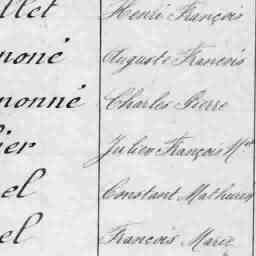 llet Henri François
noné Auguste Francois
nonné Charles Pierre
ier Julien François M.
el Constant Mathurin
el Francois Marie